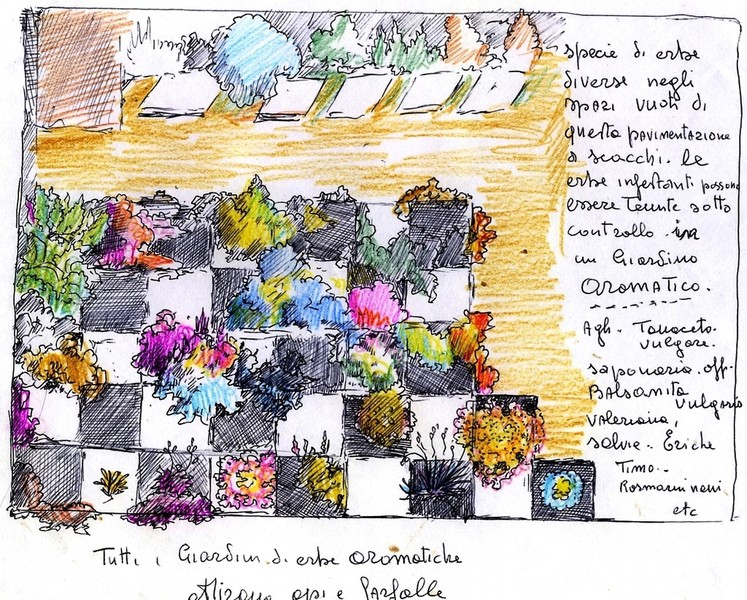 specie di erbe
diverse negli
spazi vuoti di
questa pavimentazione
a scacchi. le
erbe infestanti possono
essere tenute sotto
controllo in
un Giardino
aromatico.
Agli. Tanaceto.
vulgare.
saponaria. off.
Balsamita
vulgaris
valeriana,
salvia. Eriche
Timo.
Rosmarini nani
etc
Tutti i Giardini di erbe aromatiche
attirano api e farfalle